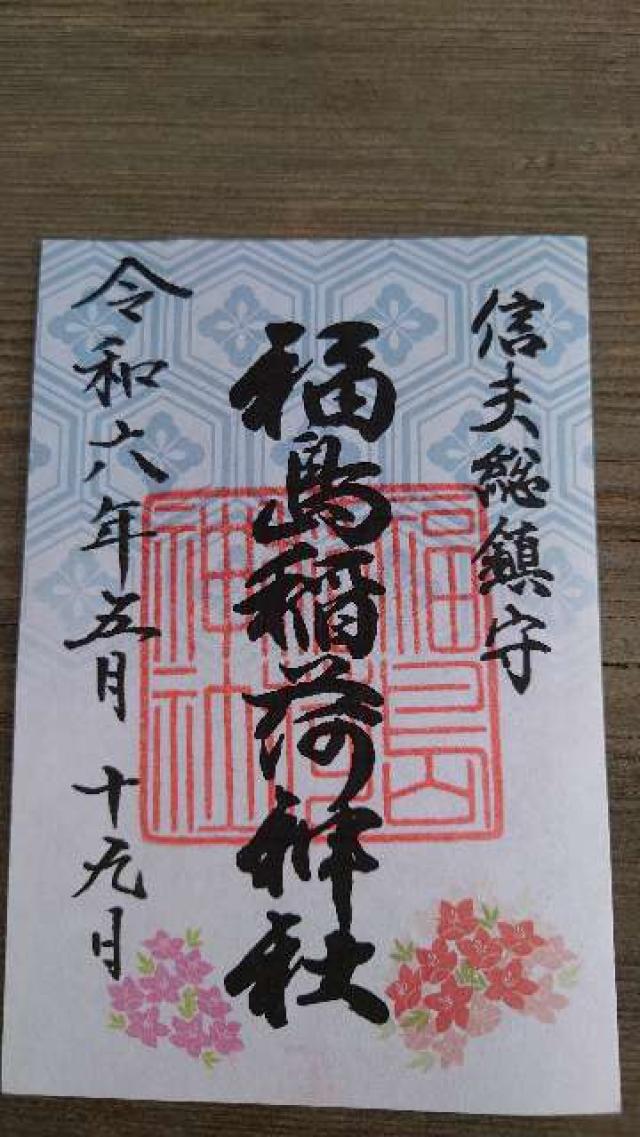 信夫総鎮守
福島稲荷神社
福島稲荷神社
令和六年五月十九日